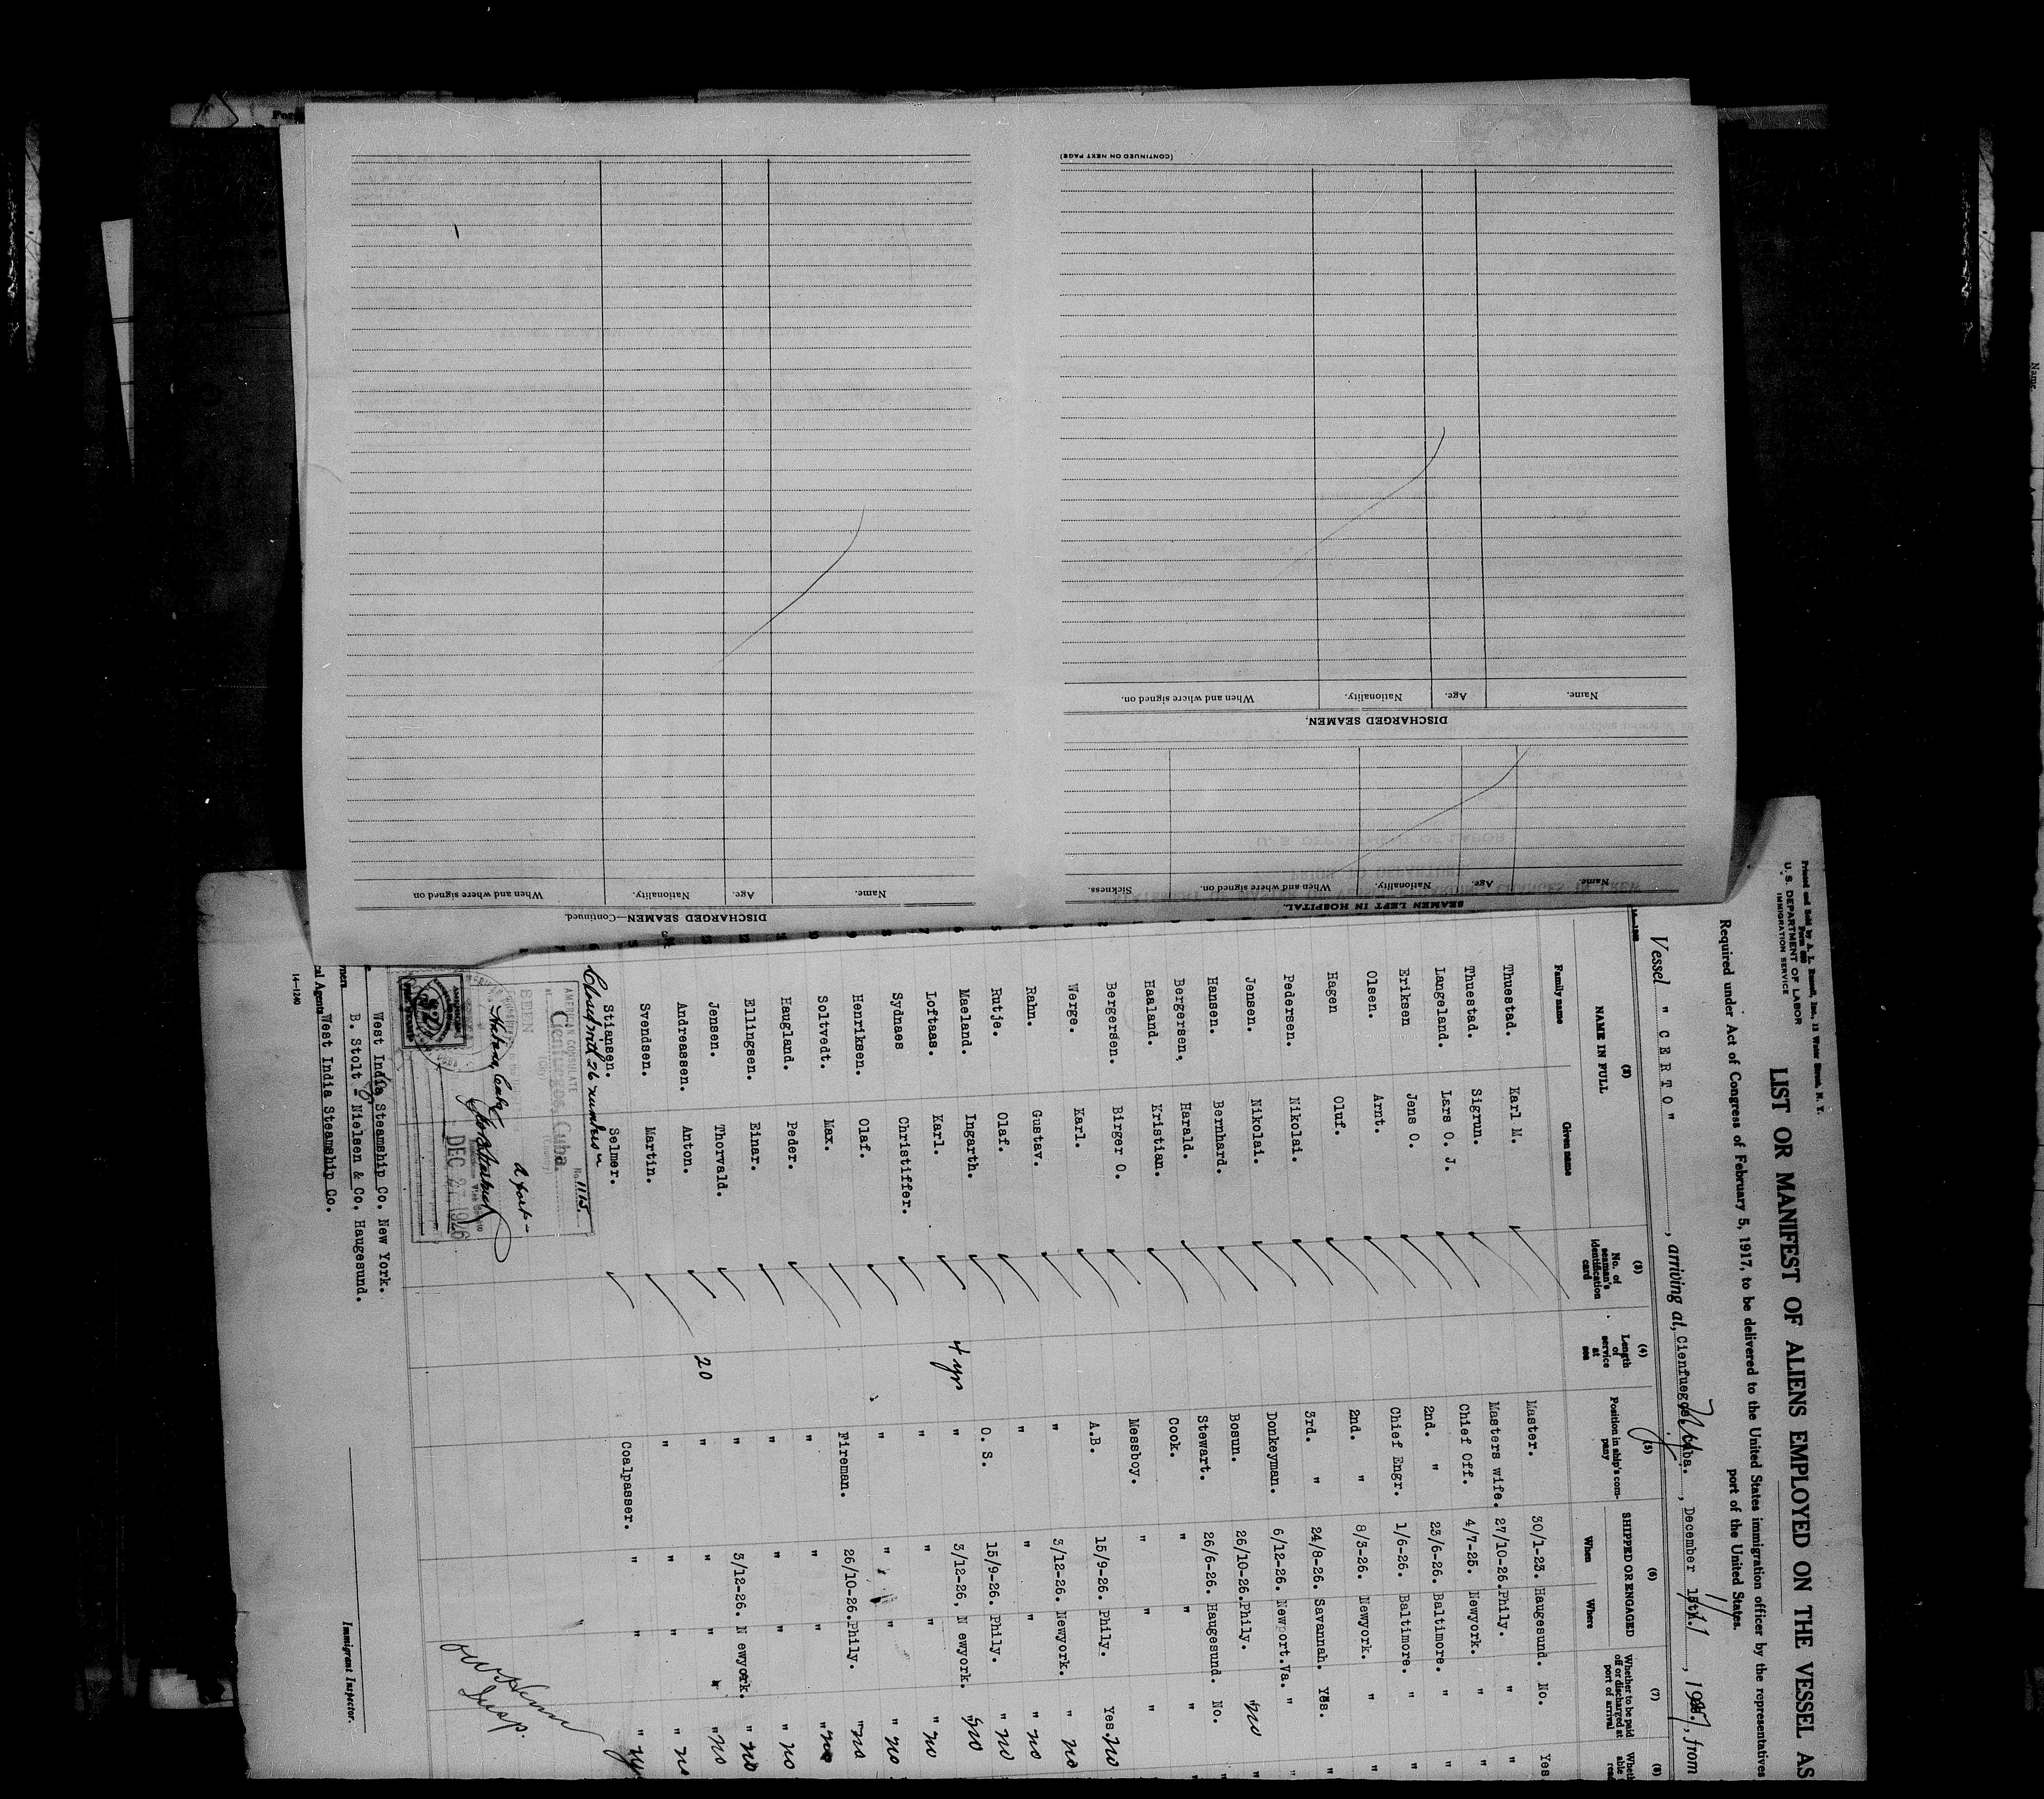 (CONTINUED ON NEXT PAGE)
Name. Age. Nationality. When and where signed on.
DISCHARGED SEAMEN,
Name. Age. Nationality. When and where signed on. Sickness.
SEAMEN LEFT IN HOSPITAL.
Name. Age. Nationality. When and where signed on
DISCHARGED SEAMEN—Continued.
Printed and Sold by A. L. Russell, Inc., 12 Water Street, N. Y.
U. S. DEPARTMENT OF LABOR
IMMIGRATION SERVICE
LIST OR MANIFEST OF ALIENS EMPLOYED ON THE VESSEL AS
Required under Act of Congress of February 5, 1917, to be delivered to the United States immigration officer by the representatives
port of the United States.
Vessel " CERTO ", arriving at, Cienfuegos, Cuba., December 15th., 192, from
(2) (3) (4) (5) (6) (7) (8)
NAME IN FULL
Family name Given name
No. of seaman's identification card
Length of service at sea
Position in ship's company
SHIPPED OR ENGAGED
When Where
Whether to be paid off or discharged at port of arrival
Thuestad. Karl M. Master. 30/1-23. Haugesund. No. Yes
Thuestad. Sigrun. Masters wife. 27/10-26. Phily. " "
Langeland. Lars O. J. Chief Off. 4/7-25. Newyork. " "
Eriksen Jens O. 2nd. " 23/6-26. Baltimore. " "
Olsen. Arnt. Chief Engr. 1/6-26. Baltimore. " "
Hagen Oluf. 2nd. " 8/3-26. Newyork. " "
Pedersen. Nikolai. 3rd. " 24/8-26. Savannah. Yes. "
Jensen. Nikolai. Donkeyman. 6/12-26. Newport.Va. " "
Hansen. Bernhard. Bosun. 26/10-26. Phily. " no "
Bergersen. Harald. Stewart. 26/6-26. Haugesund. No. "
Haaland. Kristian. Cook. " " "
Bergersen. Birger O. Messboy. " " "
Werge. Karl. A.B. 15/9-26. Phily. Yes. no
Rahn. Gustav. " 3/12-26. Newyork. " no
Rutje. Olaf. " " " " no
Maeland. Ingarth. O. S. 15/9-26. Phily. " no
Loftaas. Karl. 4 yrs " 3/12-26, N ewyork. " no
Sydnaes Christiffer. " " " " no
Henriksen. Olaf. " " " " no
Soltvedt. Max. Fireman. 26/10-26. Phily. " no
Haugland. Peder. " " " " no
Ellingsen. Einar. " " " " no
Jensen. Thorvald. " 3/12-26. N ewyork. " no
Andreassen. Anton. 20 " " " " no
Svendsen. Martin. " " " " no
Stiansen. Selmer. Coalpasser. " " "
Closed with 26 numbers
AMERICAN CONSULATE
Cienfuegos, Cuba.
No. 1115.
SEEN
Habana, Cuba
DEC 27 1926
Insp.
West India Steamship Co. New York.
B. Stolt - Nielsen & Co. Haugesund.
West India Steamship Co.
Immigrant Inspector.
14—1240
Name.